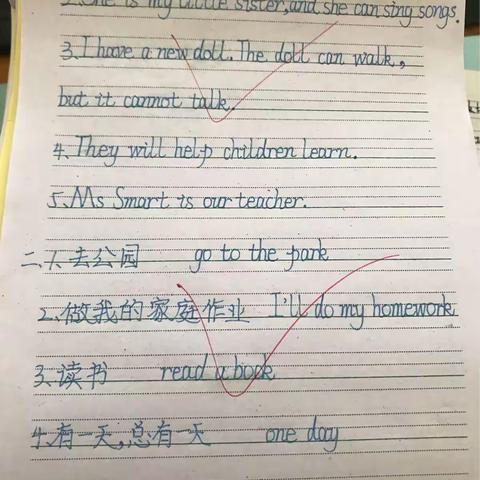 2. She is my little sister, and she can sing songs.
3. I have a new doll. The doll can walk,
but it cannot talk.
4. They will help children learn.
5. Ms Smart is our teacher.
二、1. 去公园 go to the park
2. 做我的家庭作业 I'll do my homework
3. 读书 read a book
4. 有一天,总有一天 one day